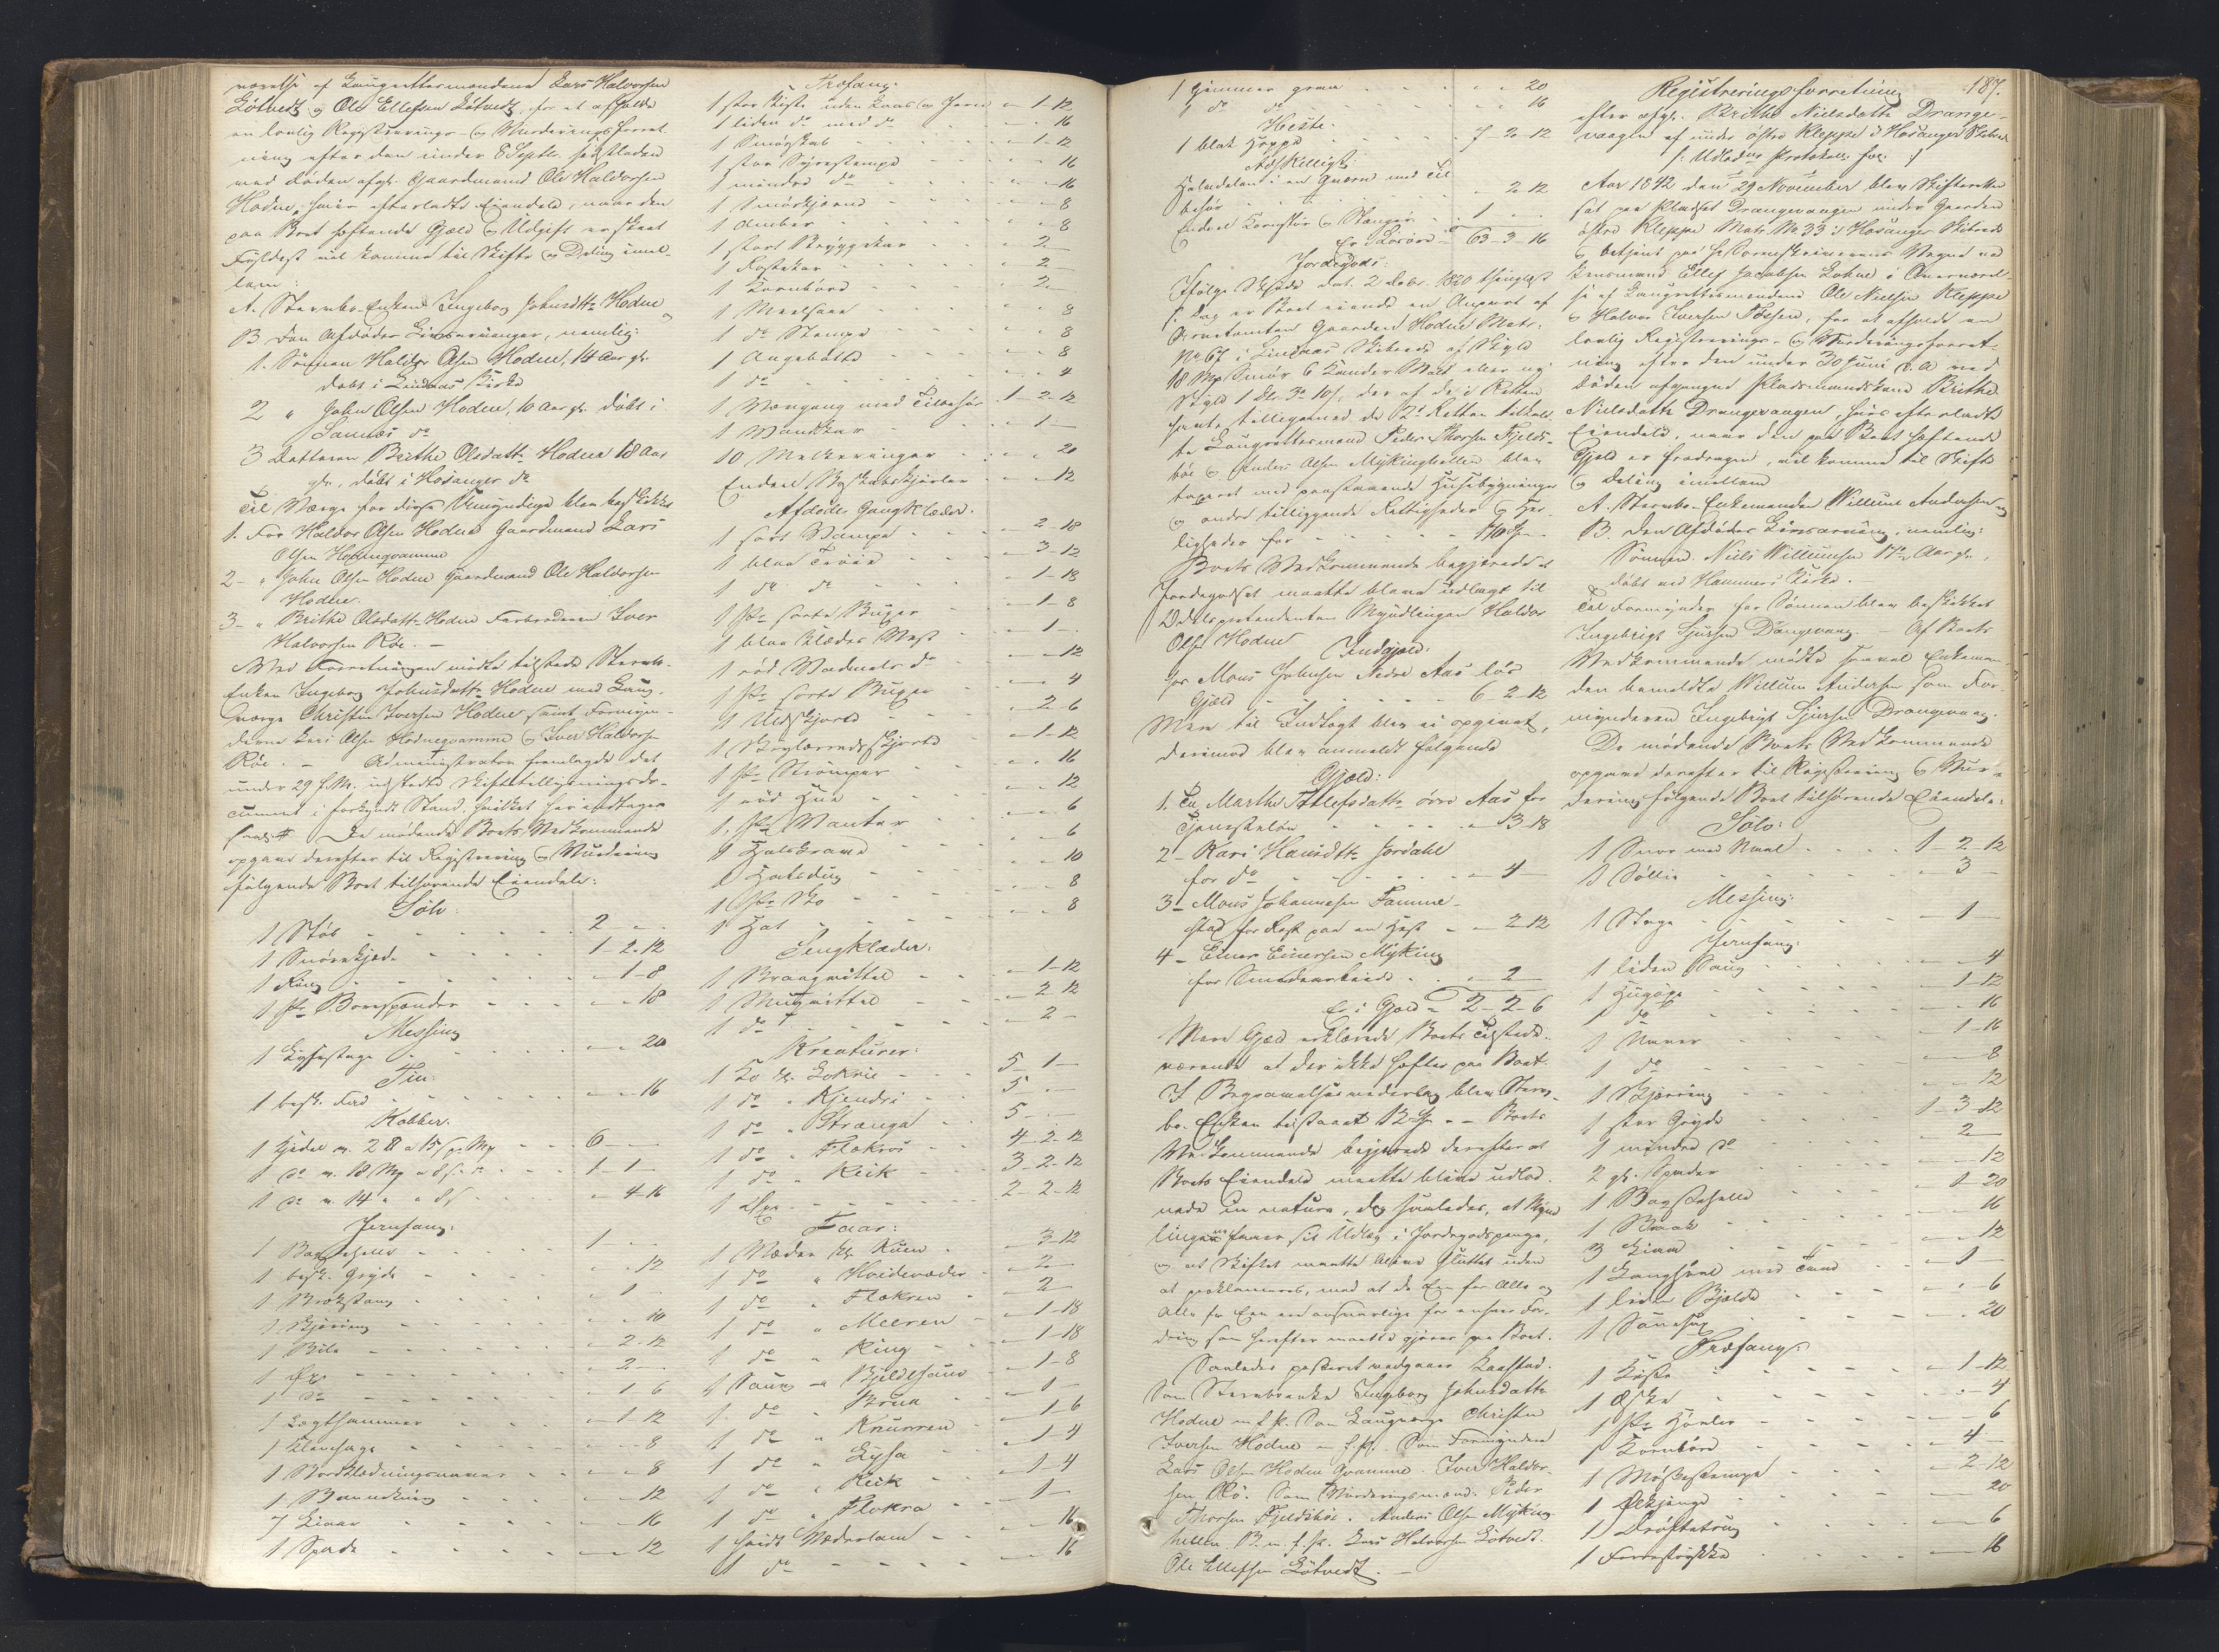 værelse af Laugrettesmændene Lars Halvorsen
Løtvedt og Ole Ellefsen Løtvedt, for at afholde
en lovlig Registrerings- og Vurderingsforret-
ning efter den under 8 Septbr. sidstleden
ved Døden afgl. Gaardmand Ole Haldorsen
Hodne, hvis efterladte Eiendele, naar den
paa Boet heftende Gjæld og Udgift er
fyldest vil komme til Skifte og Deling imel-
lem:
A. Stervbo-Enken Ingeborg Johnsdtr Hodne og
B. Den Afdødes Livsarvinger, nemlig:
1. Sønnen Haldor Olsen Hodne, 14 Aar gl.
døbt i Lindaas Kirke
2 " John Olsen Hodne, 10 Aar gl. døbt i
Samnø do
3 Datteren Brithe Olsdatr Hodne 18 Aar
gl., døbt i Hosanger do
Til Værge for disse Umyndige blev beskikket
1. For Haldor Olsen Hodne Gaardmand Lars
Olsen Hodneqvamme
2 - " John Olsen Hodne Gaardmand Ole Haldorsen
Hodne.
3 - " Brithe Olsdatr Hodne Farbroderen Iver
Halvorsen Röe. —
Ved Forretningen mødte tilstede Stervb.
Enken Ingeborg Johnsdattr Hodne med Laug-
værge Christen Iversen Hodne samt Formyn-
derne Lars Olsen Hodneqvamme og Iver Haldorsen
Röe. — Administrator fremlagde det
under 29 f. M. udstedte Skiftetillysningsdo-
cument i forkyndt Stand, hvilket her indtages
saal: # De mødende Boets Vedkommende
opgave derefter til Registrering og Vurdering
følgende Boet tilhørende Eiendele:
Sølv:
1 Støb 2 - -
1 Snørekjæde 1-2-12
1 Ring - 1-8
1 Par Borespænder - - 18
Messing
1 Lysestage - - 20
Tin:
1 besk. Fad - - 16
Kobber.
1 Kjedel v. 2 ℔ a 15 s pr Mp 6 - -
1 do v. 18 Mp a 8 s do 1-1 -
1 do v. 14 " a 8 s - 4-16
Jernfang:
1 Bagstehelle 1 - -
1 besk. Gryde - - 12
1 Brækstang - 1 -
1 Skjæring - - 10
1 Bile - 2-12
1 Øxe - 2 -
1 do - 1-6
1 Lægthammer - 1-12
1 Klovsage - - 8
1 Bordklædningsnaver - - 8
1 - - 12
7 Liaar - - 16
1 Spade - - 12
Træfang:
1 stor Kiste uden Laas og Jern - 1-12
1 liden do med do - - 16
1 Smørskab - 1-12
1 stor Syrestampe - - 16
1 mindre do - - 16
1 Smørkjerne - - 8
1 Ambar - - 8
1 stort Bryggekar - 2 -
1 Rostekar - 2
1 Kornbord - 2 -
1 Meelsaae - - 8
1 do Stampe - - 8
1 Angebøtte - - 8
1 do - - 4
1 Vævgang med Tilbehør 1-2-12
1 Vandkar - 1 -
10 Melkeringer - - 20
Endeel - - 12
Afdødes Gangklæder.
1 sort Vampe - 2-18
1 blaa Trøie - 3-12
1 do do - 1-18
1 Par sorte Buxer - 1-8
1 blaa Klædes Vest - 1 -
1 rød Vadmels do - - 12
1 Par sorte Buxer - - 4
1 Uldskjorte - 2-6
1 Strylærredsskjorte - 1-12
1 Par Strømper - - 16
1 rød Hue - - 12
1, Par Vanter - - 6
1 Halskrave - - 6
1 Halsdug - - 10
1 Par Sko - - 8
1 Hat - - 8
Sengklæder:
1 Braagvittel - 1-12
1 - 2-12
1 do - 2 -
Kreaturer:
1 Ko kl. Lokrie 5-1 -
1 do " Kjendri 5 - -
1 do " Stranga 5 - -
1 do " Flekrei 4-2-12
1 do " Reik 3-2-12
1 2-2-12
Faar:
1 Væder kl. Kuen - 3-12
1 do " Hvidevæder - 2 -
1 do " Flekren - 2
1 do " Meeren - 1-18
1 do " Ring - 1-18
1 Saug - " Bjeldesaue - 1-8
1 do " Brun - 1 -
1 do " Knurren - 1-6
1 do " Lysa - 1-4
1 do " Reik - 1-4
1 do " Flekra - 1 -
1 hvidt Væderlam - - 16
1 do - - 16
1 Gimmer graa - - 20
1 do do - - 16
Heste.
1 blak Hoppe 7-2-12
Adskilligt:
Halvdelen i en Qværn med Til-
behør - 2-12
Endeel Kornstør og Stænger 1 - -
Er i Løsøre 63-3-16
Jordegods:
Ifølge Skjøde dat. 2 Febr. 1820 thinglæst
s. Dag er Boet eiende en Anpart af
Gaarden Hodne Matr.
No 67 i Lindaas Skibrede af Skyld
18 Mp Smør 6 Kander Malt eller ny
Skyld 1 Dlr. 3 10 s, der af de i Retten
hente tilligemed de 2de i Retten tilkald-
te Laugrettesmænd Peder Thorsen Fjelds-
bøe og Anders Olsen Mykinghellen blev
taxeret med paastaaende Huusebygninger
og andre tilliggende Rettigheder og Her-
ligheder for 170 Spd
Boets Vedkommende begjærede at
Jordegodset maatte blive udlagt til
Odelsprætendenten Myndlingen Haldor
Olsen Hodne Indgjæld.
hos Mons Johnsen Nedre Aas løs
Gjæld 6-2-12
Mere til Indtægt blev ei opgivet,
derimod blev anmeldt følgende
Gjæld:
1. Til Marthe Ellefsdatr øvre Aas for
Tjenesteløn - 3-18
2 - Kari Hansdtr Jordahl
for do - 4
3 - Mons Johannesen Famme-
stad for Rest paa en Hest - 2-12
4 - Einer Einersen Myking
for Smedearbeide - 2
Er i Gjæld 2-2-6
Mere Gjæld erklærede Boets Tilstede-
værende at der ikke hefter paa Boet.
I Begravelsesvederlag blev Sterv-
bo-Enken tilstaaet 12 Spd - Boets
Vedkommende begjærede derefter at
Boets Eiendele maatte blive udlod-
nede in natura, dog saaledes, at Mynd-
lingerne faaer sit Udlæg i Jordegodspenge,
og at Skiftet maatte blive sluttet uden
at proklameres, mod at de Een for Alle og
Alle for Een ere ansvarlige for enhver For-
dring som herefter maatte gjøres paa Boet.
Saaledes passeret vedgaaer Laastad.
Som Stervboenke Ingeborg Johnsdatr
Hodne m. f. P. Som Laugværge Christen
Iversen Hodne m. f. P. Som Formyndere
Lars Olsen Hodne Qvamme. Iver Haldor-
sen Rö. Som Vurderingsmænd: Peder
Thorsen Fjeldsbøe. Anders Olsen Myking-
hellen B. m. f. P. Lars Halvorsen Løtvedt.
Ole Ellefsen Løtvedt. —
187.
Registreringsforretning
efter afgl. Brithe Nielsdattr Drange-
vaagen af under østre Kleppe i Hosanger Skibrede
/: Udlodns Protokoll fol: :/
Aar 1842 den 29 November blev Skifteretten
sat paa Pladset Drangevaagen under Gaarden
østre Kleppe Matr. No 33 i Hosanger Skibrede
og betjent paa Hr Sorenskriverens Vegne ved
Lensmand Ellef Jacobsen Lohne i Overværel-
se af Laugrettesmændene Ole Nielsen Kleppe
og Halvor Iversen Fossen, for at afholde en
lovlig Registrerings- og Vurderingsforret-
ning efter den under 30 Juni d. A. ved
Døden afgangne Pladsmandskone Brithe
Nielsdattr Drangevaagen, hvis efterladte
Eiendele, naar den paa Boet heftende
Gjæld er fradragen, vil komme til Skifte
og Deling imellem
A. Stervbo-Enkemanden Willum Andersen og
B. Den Afdødes Livsarving, nemlig:
Sønnen Niels Willumsen 17 Aar gl.,
døbt ved Hammers Kirke.
Til Formynder for Sønnen blev beskikket
Ingebrigt Sjursen Drangevaag. Af Boets
Vedkommende mødte saavel Enkeman-
den bemeldte Willum Andersen som For-
mynderen Ingebrigt Sjursen Drangevaag.
De mødende Boets Vedkommende
opgave derefter til Registrering og Vur-
dering følgende Boet tilhørende Eiendele:
Sølv:
1 Snor med Naal 1-2-12
1 Søllie - 3 -
Messing:
1 Stage - 1 -
Jernfang:
1 liden Saug - - 4
1 Hugøxe - 1-12
1 do - - 16
1 Naver - 1-16
1 do - - 8
1 Skjæring - - 12
1 stor Gryde 1-3-12
1 mindre do - 2 -
2 gl. Spader - - 12
1 Bagstehelle - 1-20
1 Braak - - 16
3 Liaar - - 12
1 Langhøvel med Tand - 1 -
1 liden Bjelde - - 6
1 Sauesax - - 20
Træfang:
1 Kiste - 1-12
1 Æske - - 4
1 Par Høvler - - 6
1 Kornbøre - 4 -
1 Mæskestampe - 2-12
1 - - 20
1 Drøftetrug - - 6
1 - - 16